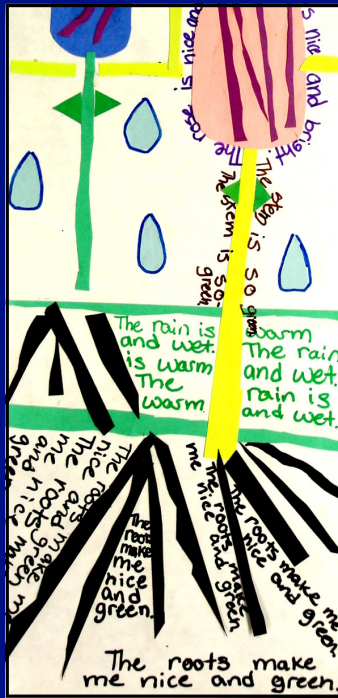 The rose is nice and
s nice and bright
The stem is so
green
The stem is so green
The rain is
and wet.
is warm
The
warm.
warm
The rain
and wet.
rain is
and wet.
The roots make me
nice and green
The roots make
me and nice
green
The
roots
make
me
nice
and
green.
The roots make
me nice and green
The roots make me
nice and green.
The roots make
me nice and green.